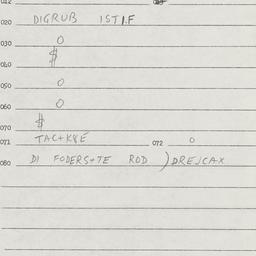 012
020 DIGRUB IST I.F
030 0
$
040
050 0
060 0
$
070
071 TAC+KKÉ 072 0
080 DI FODERS+TE ROD )DREJCAX